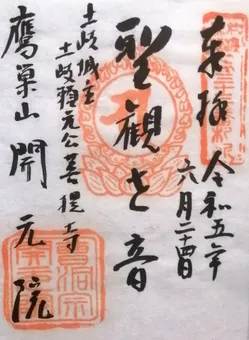 奉拝 令和五年
六月二十四日
聖観世音
土岐城主
土岐頼元公菩提寺
鷹巣山 開元院